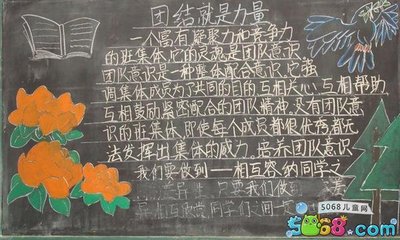 团结就是力量
一个富有凝聚力和竞争力
的班集体,它的灵魂是团队意识
团队意识是一种整体配合意识,它强
调集体成员为了共同的目的互相关心、互相帮助
互相鼓励、紧密配合的团队精神,没有团队意
识的班集体,即使每个成员都很优秀,都无
法发挥出集体的威力。培养团队意识
我们要做到——相互容的同学之
只要我们做
同学们
5068儿童网
5068.com